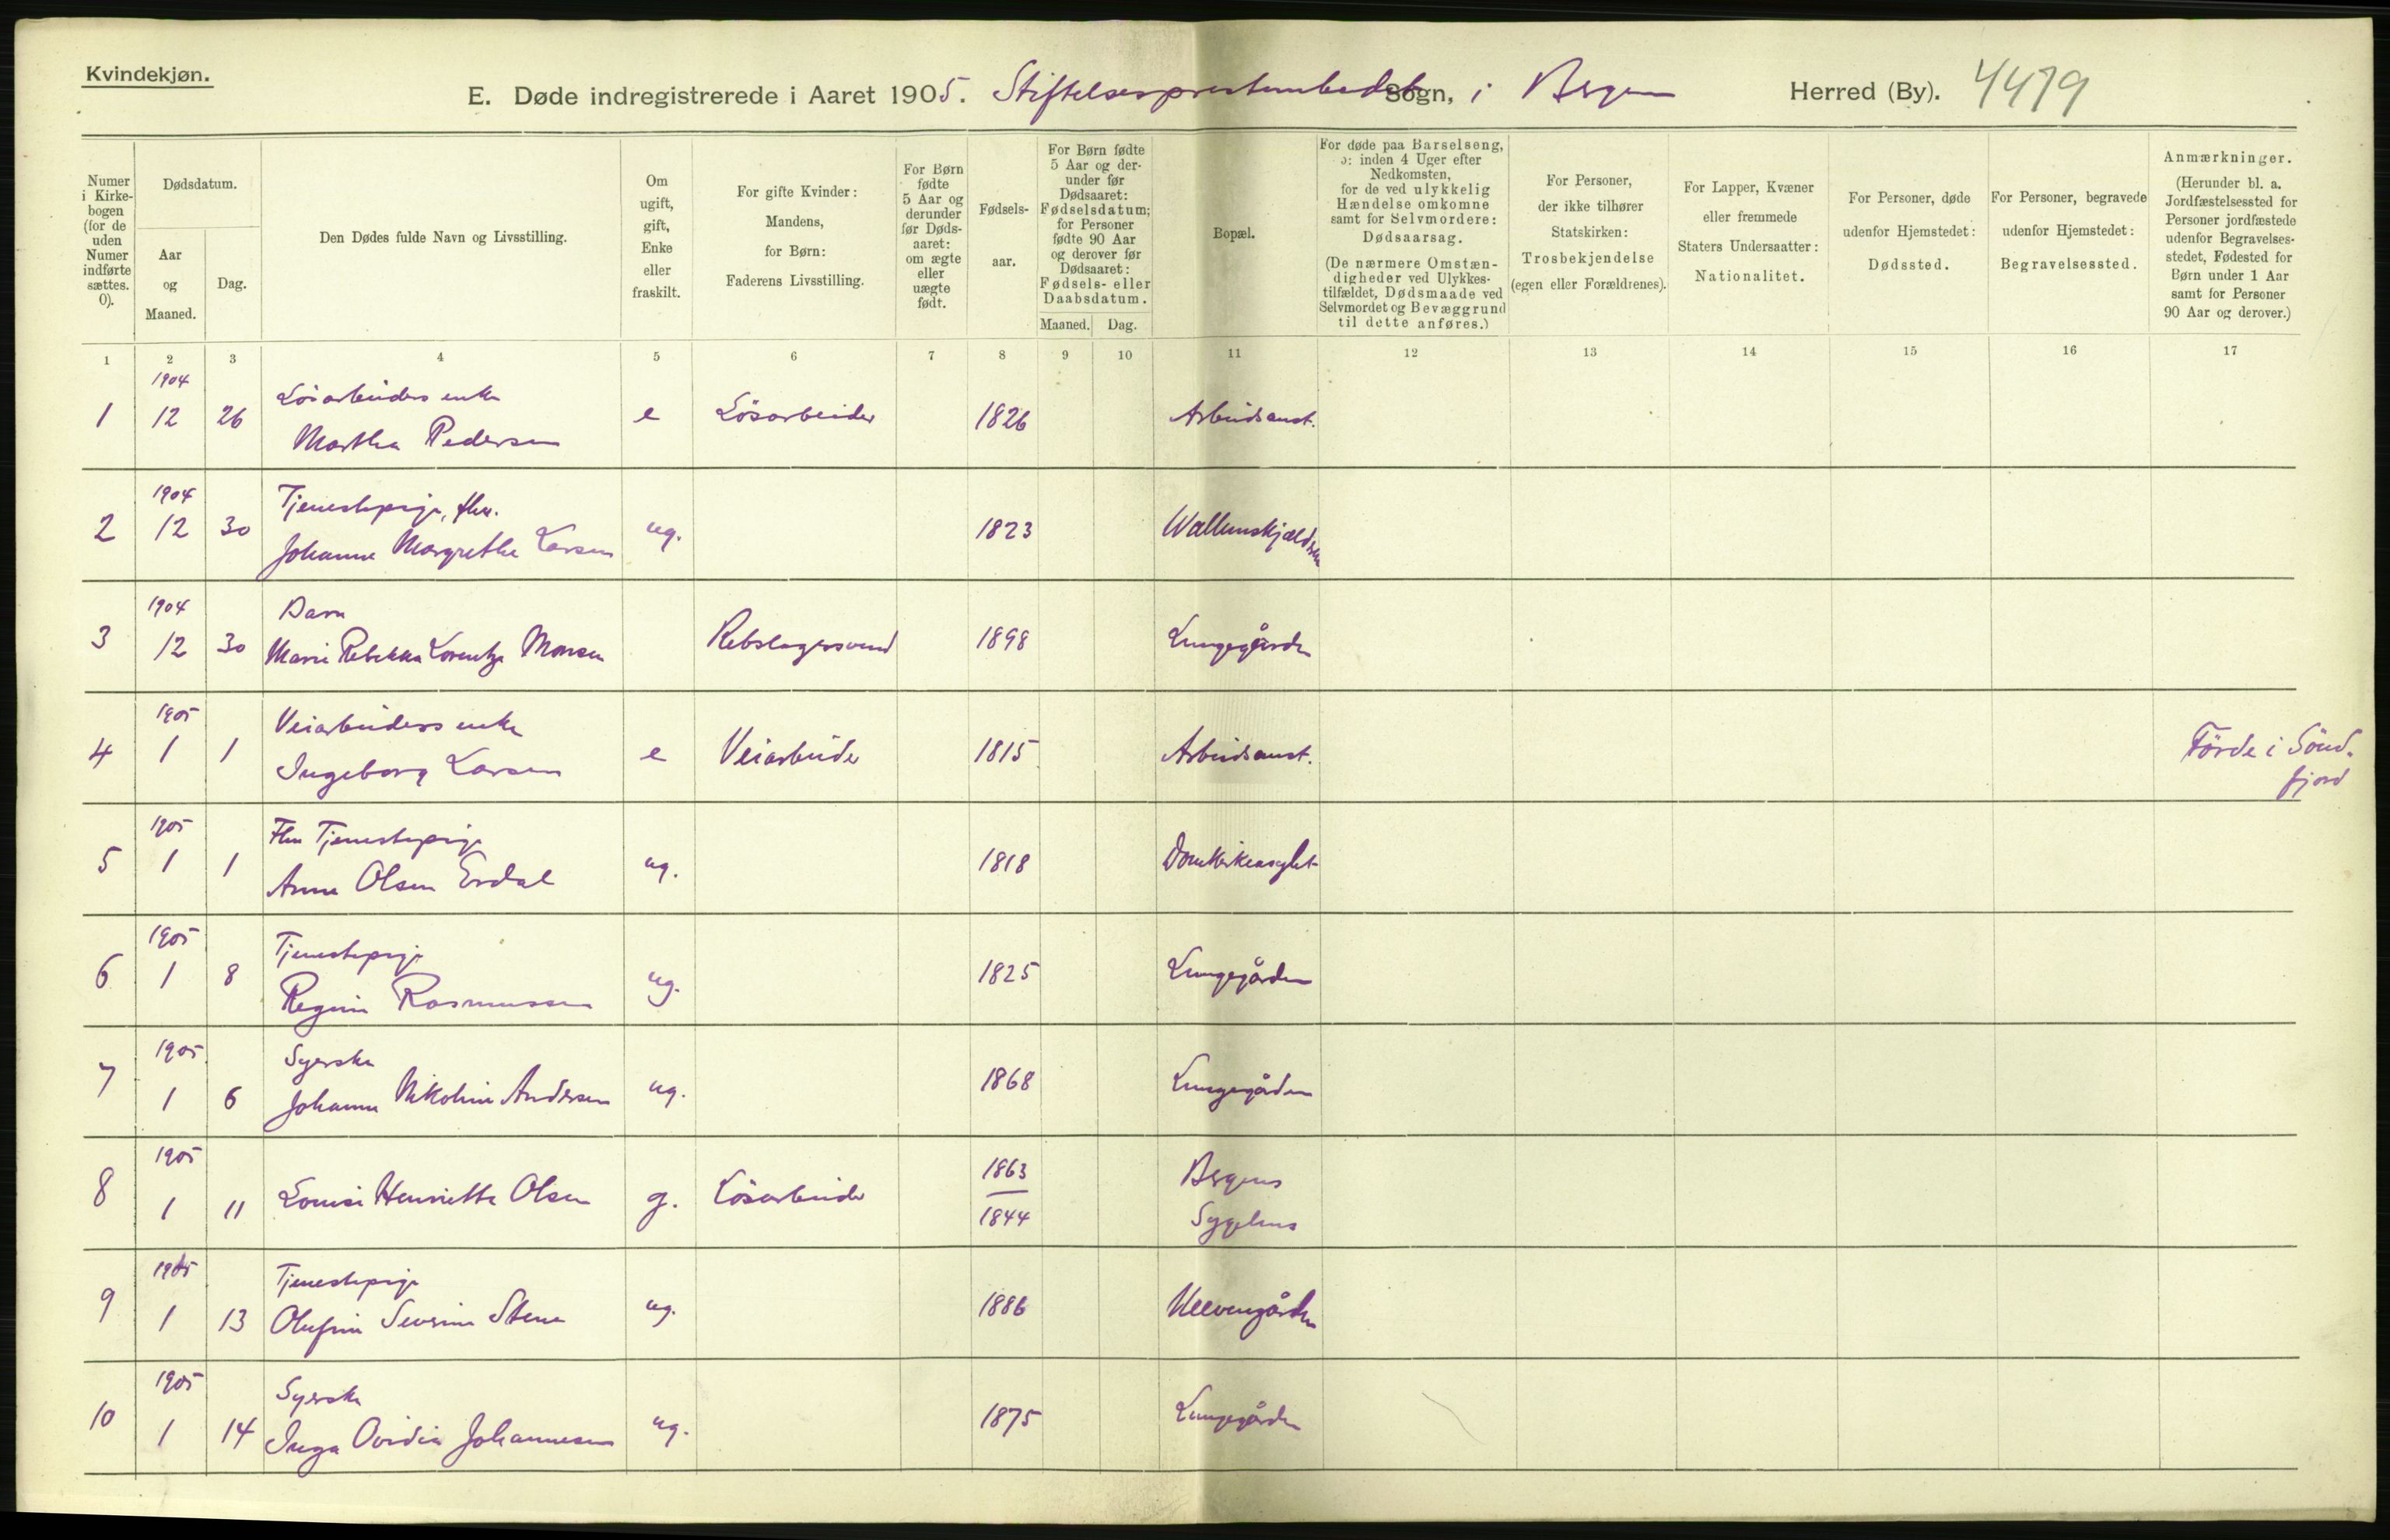 Kvindekjøn.
E. Døde indregistrerede i Aaret 1905. Stiftelsesprestembedet Sogn, i Bergen Herred (By). 4479
Numer i Kirkebogen (for de uden Numer indførte sættes. 0).
Dødsdatum.
Aar og Maaned.
Dag.
Den Dødes fulde Navn og Livsstilling.
Om ugift, gift, Enke eller fraskilt.
For gifte Kvinder: Mandens, for Børn: Faderens Livsstilling.
For Børn fødte 5 Aar og derunder før Dødsaaret: om ægte eller uægte født.
Fødselsaar.
For Børn fødte 5 Aar og derunder før Dødsaaret: Fødselsdatum; for Personer fødte 90 Aar og derover før Dødsaaret: Fødsels- eller Daabsdatum.
Maaned. Dag.
Bopæl.
For døde paa Barselseng, ɔ: inden 4 Uger efter Nedkomsten, for de ved ulykkelig Hændelse omkomne samt for Selvmordere: Dødsaarsag. (De nærmere Omstændigheder ved Ulykkestilfældet, Dødsmaade ved Selvmordet og Bevæggrund til dette anføres.)
For Personer, der ikke tilhører Statskirken: Trosbekjendelse (egen eller Forældrenes).
For Lapper, Kvæner eller fremmede Staters Undersaatter: Nationalitet.
For Personer, døde udenfor Hjemstedet: Dødssted.
For Personer, begravede udenfor Hjemstedet: Begravelsessted.
Anmærkninger. (Herunder bl. a. Jordfæstelsessted for Personer jordfæstede udenfor Begravelsesstedet, Fødested for Børn under 1 Aar samt for Personer 90 Aar og derover.)
1 2 3 4 5 6 7 8 9 10 11 12 13 14 15 16 17
1904 Lösarbeiders enke
1 12 26 Martha Pedersen e Lösarbeider 1826 Arbeidsanst.
1904 Tjenestepige, fhv.
2 12 30 Johanne Margrethe Larsen ug. 1823
1904 Barn
3 12 30 Marie Rebekka Lorentze Monsen Rebslagersvend 1898 Lungegården
1905 Veiarbeiders enke
4 1 1 Ingeborg Larsen e Veiarbeider 1815 Arbeidsanst. Förde i Sönd-
fjord
1905 Fhv Tjenestepige
5 1 1 Anne Olsen Erdal ug. 1818 Domkirkeasylet
1905 Tjenestepige
6 1 8 Regine Rasmussen ug. 1825 Lungegården
1905 Syerske
7 1 6 Johanne Nikoline Andersen ug. 1868 Lungegården
1905 1863 Bergens
8 1 11 Louise Henriette Olsen g. Lösarbeider 1844 Sygehus
1905 Tjenestepige
9 1 13 Olufine Severine Stene ug. 1886
1905 Syerske
10 1 14 Inga Ovidia Johannesen ug. 1875 Lungegården